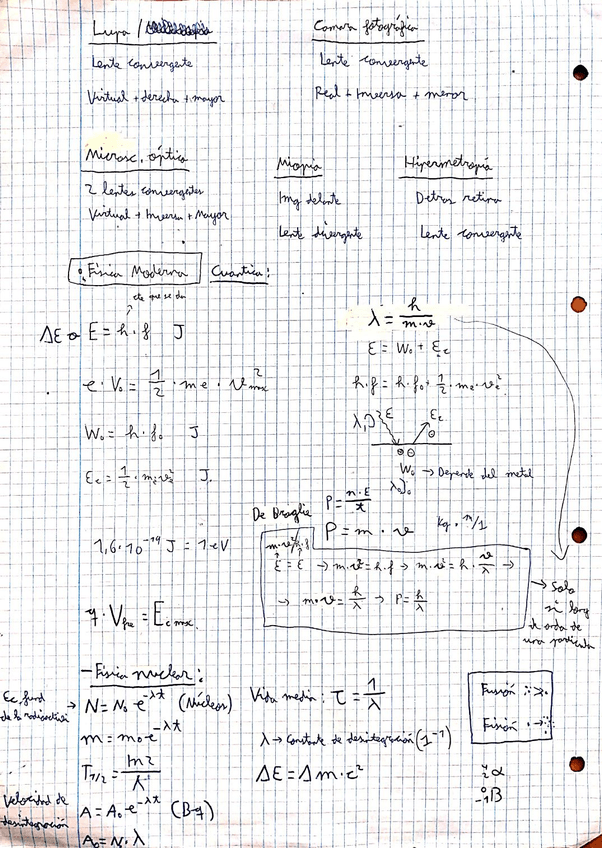 Lupa /
Lente convergente
Virtual + derecha + mayor
Camara fotográfica
Lente convergente
Real + Inversa + menor
Microsc. óptico
2 lentes convergentes
Virtual + Inversa + Mayor
Miopia
Img delante
Lente divergente
Hipermetropía
Detras retina
Lente convergente
Fisica Moderna Cuantica:
cte que se da
ΔE o E = h · f J
e · V₀ = 1/2 · me · v²max
W₀ = h · f₀ J
Ec = 1/2 · me · v²e J.
1,6 · 10⁻¹⁹ J = 1 eV
q · V = Ec max.
λ = h/(m · v)
E = W₀ + Ec
h · f = h · f₀ + 1/2 · me · v²e
λ, E Ec
W₀ → Depende del metal
De Broglie
P = n · E / t
P = m · v
m · v²/h · f
E = E → m · v² = h · f → m · v² = h · v/λ →
→ m · v = h/λ → P = h/λ
→ Solo
si long
de onda de
una particula
- Fisica nuclear:
Ec. fund
de la radioactivi
N = N₀ e^-λt (Núcleos)
m = m₀ e^-λt
T1/2 = ln2/λ
Velocidad de
desintegración
A = A₀ · e^-λt (Bq)
A₀ = N · λ
Vida media: τ = 1/λ
λ → Constante de desintegración
ΔE = Δm · c²
Fusión
Fisión
⁴₂α
⁰₋₁β